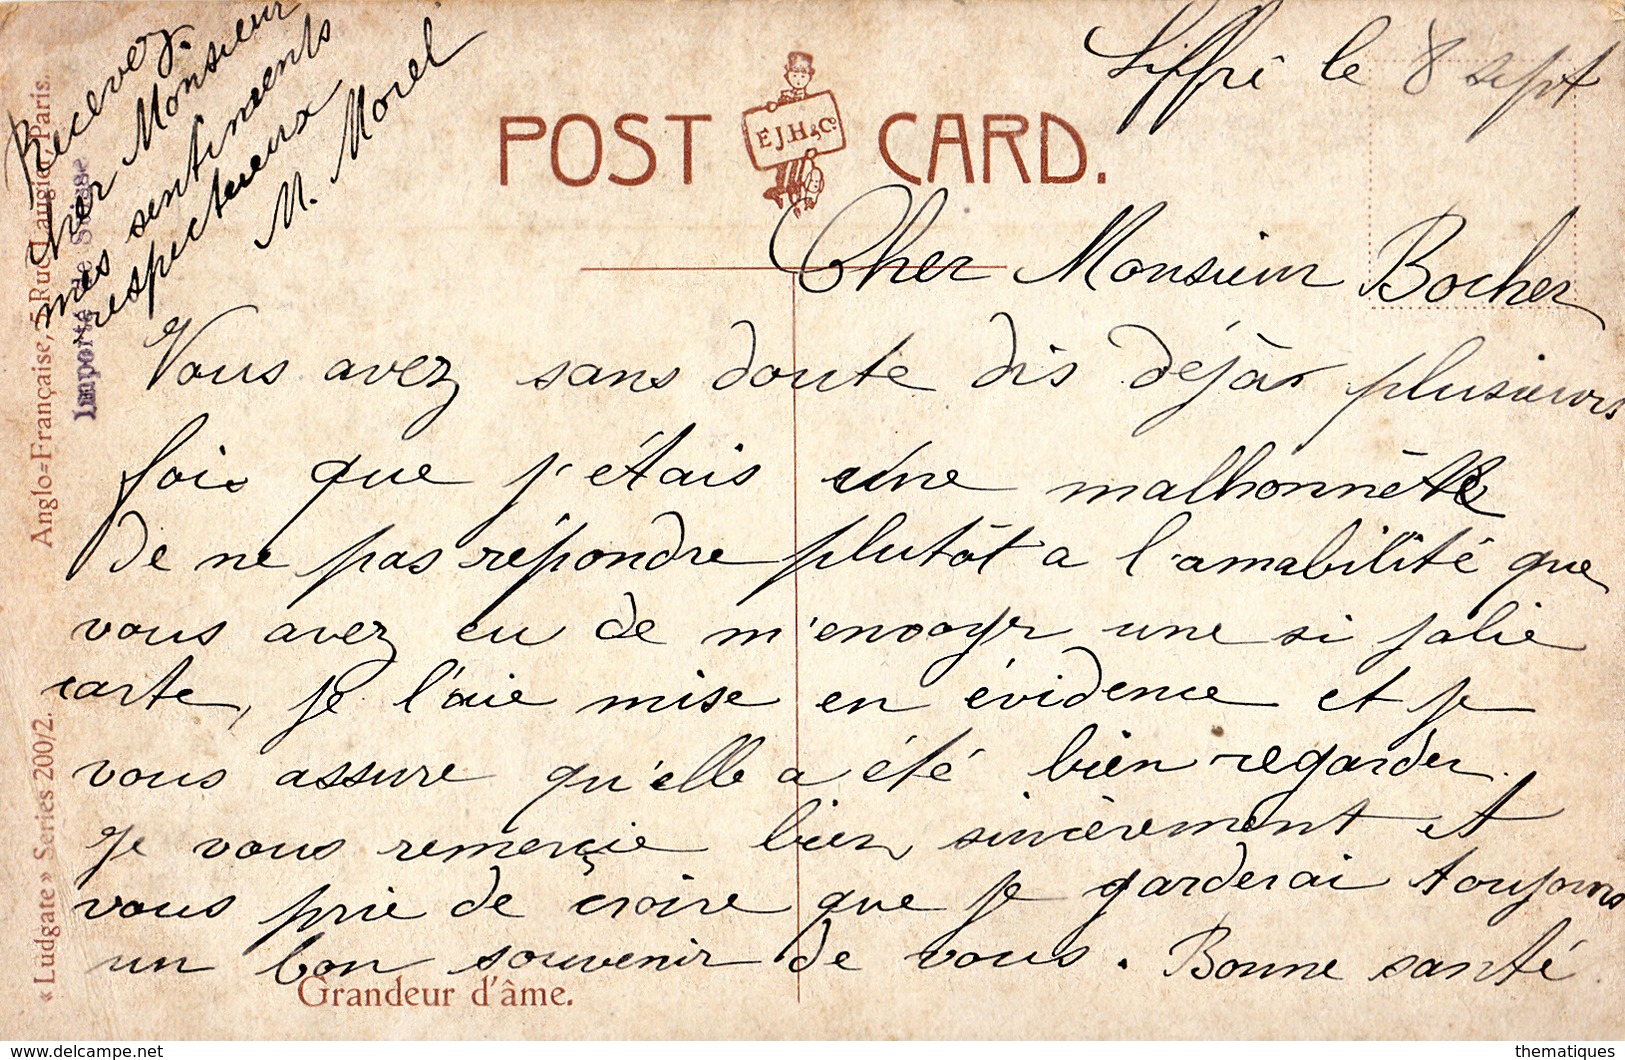 Liffré le 8 sept
POST CARD.
E.J.H & Co
Cher Monsieur Bocher
Vous avez sans doute dis déjà plusieurs
fois que j'étais une malhonnête
de ne pas répondre plutôt a l'amabilité que
vous avez eu de m'envoyer une si jolie
carte, je l'aie mise en évidence et je
vous assure qu'elle a été bien regarder.
Je vous remerçie bien sincèrement et
vous prie de croire que je garderai toujours
un bon souvenir de vous. Bonne santé
Recevez
cher Monsieur
mes sentiments
respectueux
M. Morel
Grandeur d'âme.
« Ludgate » Series 200/2. Anglo=Française, 5 Rue Laugier, Paris.
Importé de Suisse
delcampe.net
thematiques